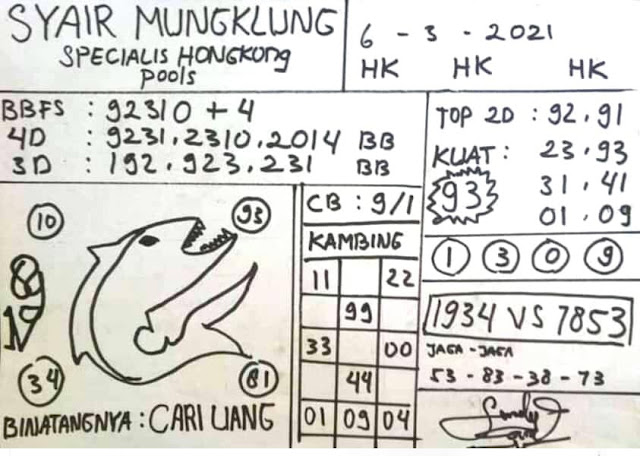 SYAIR MUNGKLUNG
SPECIALIS HONGKONG
POOLS
6 - 3 - 2021
HK HK HK
BBFS : 92310 + 4
4D : 9231.2310.2014 BB
3D : 192.923.231 BB
TOP 2D : 92.91
KUAT : 23.93
93
31.41
01.09
1 3 0 9
1934 VS 7853
JAGA-JAGA
53-83-38-73
CB : 9/1
KAMBING
11 22
99
33 00
44
01 09 04
10
93
34
81
BINATANGNYA : CARI UANG